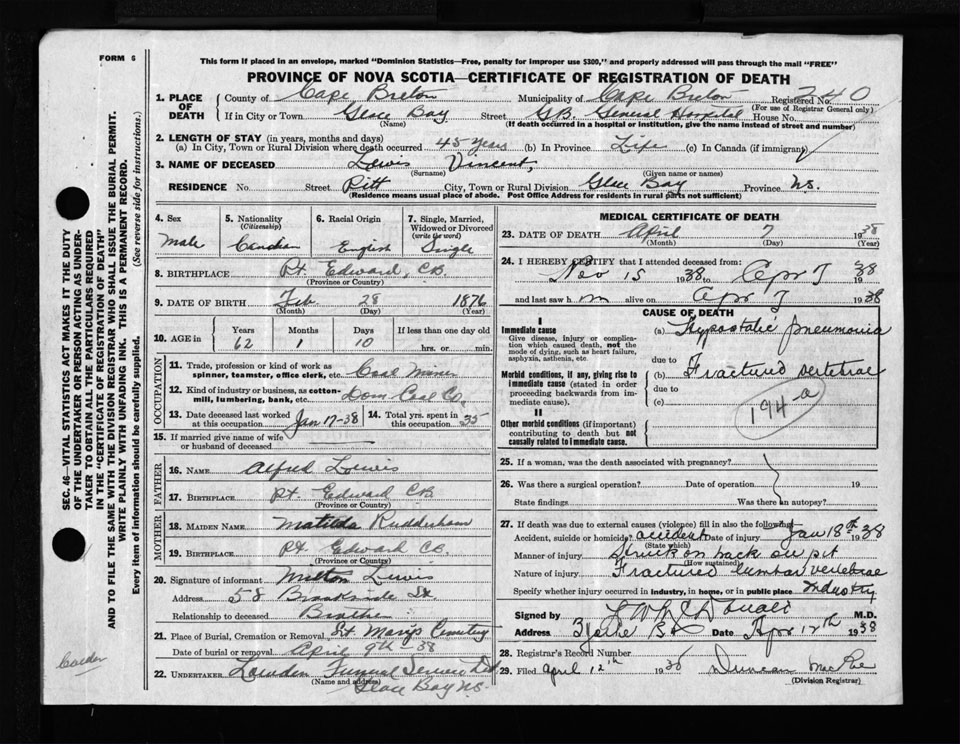 FORM 6
This form if placed in an envelope, marked "Dominion Statistics—Free, penalty for improper use $300," and properly addressed will pass through the mail "FREE"
PROVINCE OF NOVA SCOTIA—CERTIFICATE OF REGISTRATION OF DEATH
SEC. 46—VITAL STATISTICS ACT MAKES IT THE DUTY
OF THE UNDERTAKER OR PERSON ACTING AS UNDER-
TAKER TO OBTAIN ALL THE PARTICULARS REQUIRED
IN THE "CERTIFICATE OF REGISTRATION OF DEATH"
AND TO FILE THE SAME WITH THE DIVISION REGISTRAR WHO SHALL ISSUE THE BURIAL PERMIT.
WRITE PLAINLY WITH UNFADING INK. THIS IS A PERMANENT RECORD.
Every item of information should be carefully supplied. (See reverse side for instructions.)
1. PLACE OF DEATH County of Cape Breton Municipality of Cape Breton Registered No. 240
(For use of Registrar General only)
If in City or Town Glace Bay Street G.B. General Hospital House No.
(Name) (If death occurred in a hospital or institution, give the name instead of street and number)
2. LENGTH OF STAY (in years, months and days)
(a) In City, Town or Rural Division where death occurred 45 years (b) In Province Life (c) In Canada (if immigrant)
3. NAME OF DECEASED Lewis Vincent,
(Surname) (Given name or names)
RESIDENCE No. Street Pitt City, Town or Rural Division Glace Bay Province N.S.
(Residence means usual place of abode. Post Office Address for residents in rural parts not sufficient)
4. Sex 5. Nationality 6. Racial Origin 7. Single, Married,
(Citizenship) Widowed or Divorced
(write the word)
Male Canadian English Single
8. BIRTHPLACE Pt. Edward, C.B.
(Province or Country)
9. DATE OF BIRTH Feb 28 1876
(Month) (Day) (Year)
10. AGE in Years Months Days If less than one day old
62 1 10 hrs. or min.
OCCUPATION
11. Trade, profession or kind of work as
spinner, teamster, office clerk, etc. Coal Miner
12. Kind of industry or business, as cotton-
mill, lumbering, bank, etc. Dom Coal Co.
13. Date deceased last worked
at this occupation Jan 17-38 14. Total yrs. spent in
this occupation 35
15. If married give name of wife
or husband of deceased
FATHER
16. NAME Alfred Lewis
17. BIRTHPLACE Pt. Edward C.B.
(Province or Country)
MOTHER
18. MAIDEN NAME Matilda Rudderham
19. BIRTHPLACE Pt. Edward C.B.
(Province or Country)
20. Signature of informant Milton Lewis
Address 58 Brookside St.
Relationship to deceased Brother
21. Place of Burial, Cremation or Removal St. Marys Cemetery
Date of burial or removal April 9th-38
22. UNDERTAKER Funeral Service Ltd
(Name and address) Glace Bay N.S.
MEDICAL CERTIFICATE OF DEATH
23. DATE OF DEATH April 7 1938
(Month) (Day) (Year)
24. I HEREBY CERTIFY that I attended deceased from:
Nov 15 1938 to Apr 7 1938
and last saw him alive on Apr 7 1938
CAUSE OF DEATH
I
Immediate cause (a) Hypostatic pneumonia
Give disease, injury or complica-
tion which caused death, not the
mode of dying, such as heart failure,
asphyxia, asthenia, etc. due to
Morbid conditions, if any, giving rise to (b) Fractured vertebrae
immediate cause (stated in order due to
proceeding backwards from im-
mediate cause). (c)
194-a
II
Other morbid conditions (if important)
contributing to death but not
causally related to immediate cause.
25. If a woman, was the death associated with pregnancy?
26. Was there a surgical operation? Date of operation 19
State findings Was there an autopsy?
27. If death was due to external causes (violence) fill in also the following:
Accident, suicide or homicide? accident Date of injury Jan 18th 1938
(State which)
Manner of injury Struck on back in pit
(How sustained)
Nature of injury Fractured lumbar vertebrae
Specify whether injury occurred in industry, in home, or in public place Industry
Signed by M.D.
Address Date Apr 12th 1938
28. Registrar's Record Number
29. Filed April 12th 1938 Duncan MacRae
(Division Registrar)